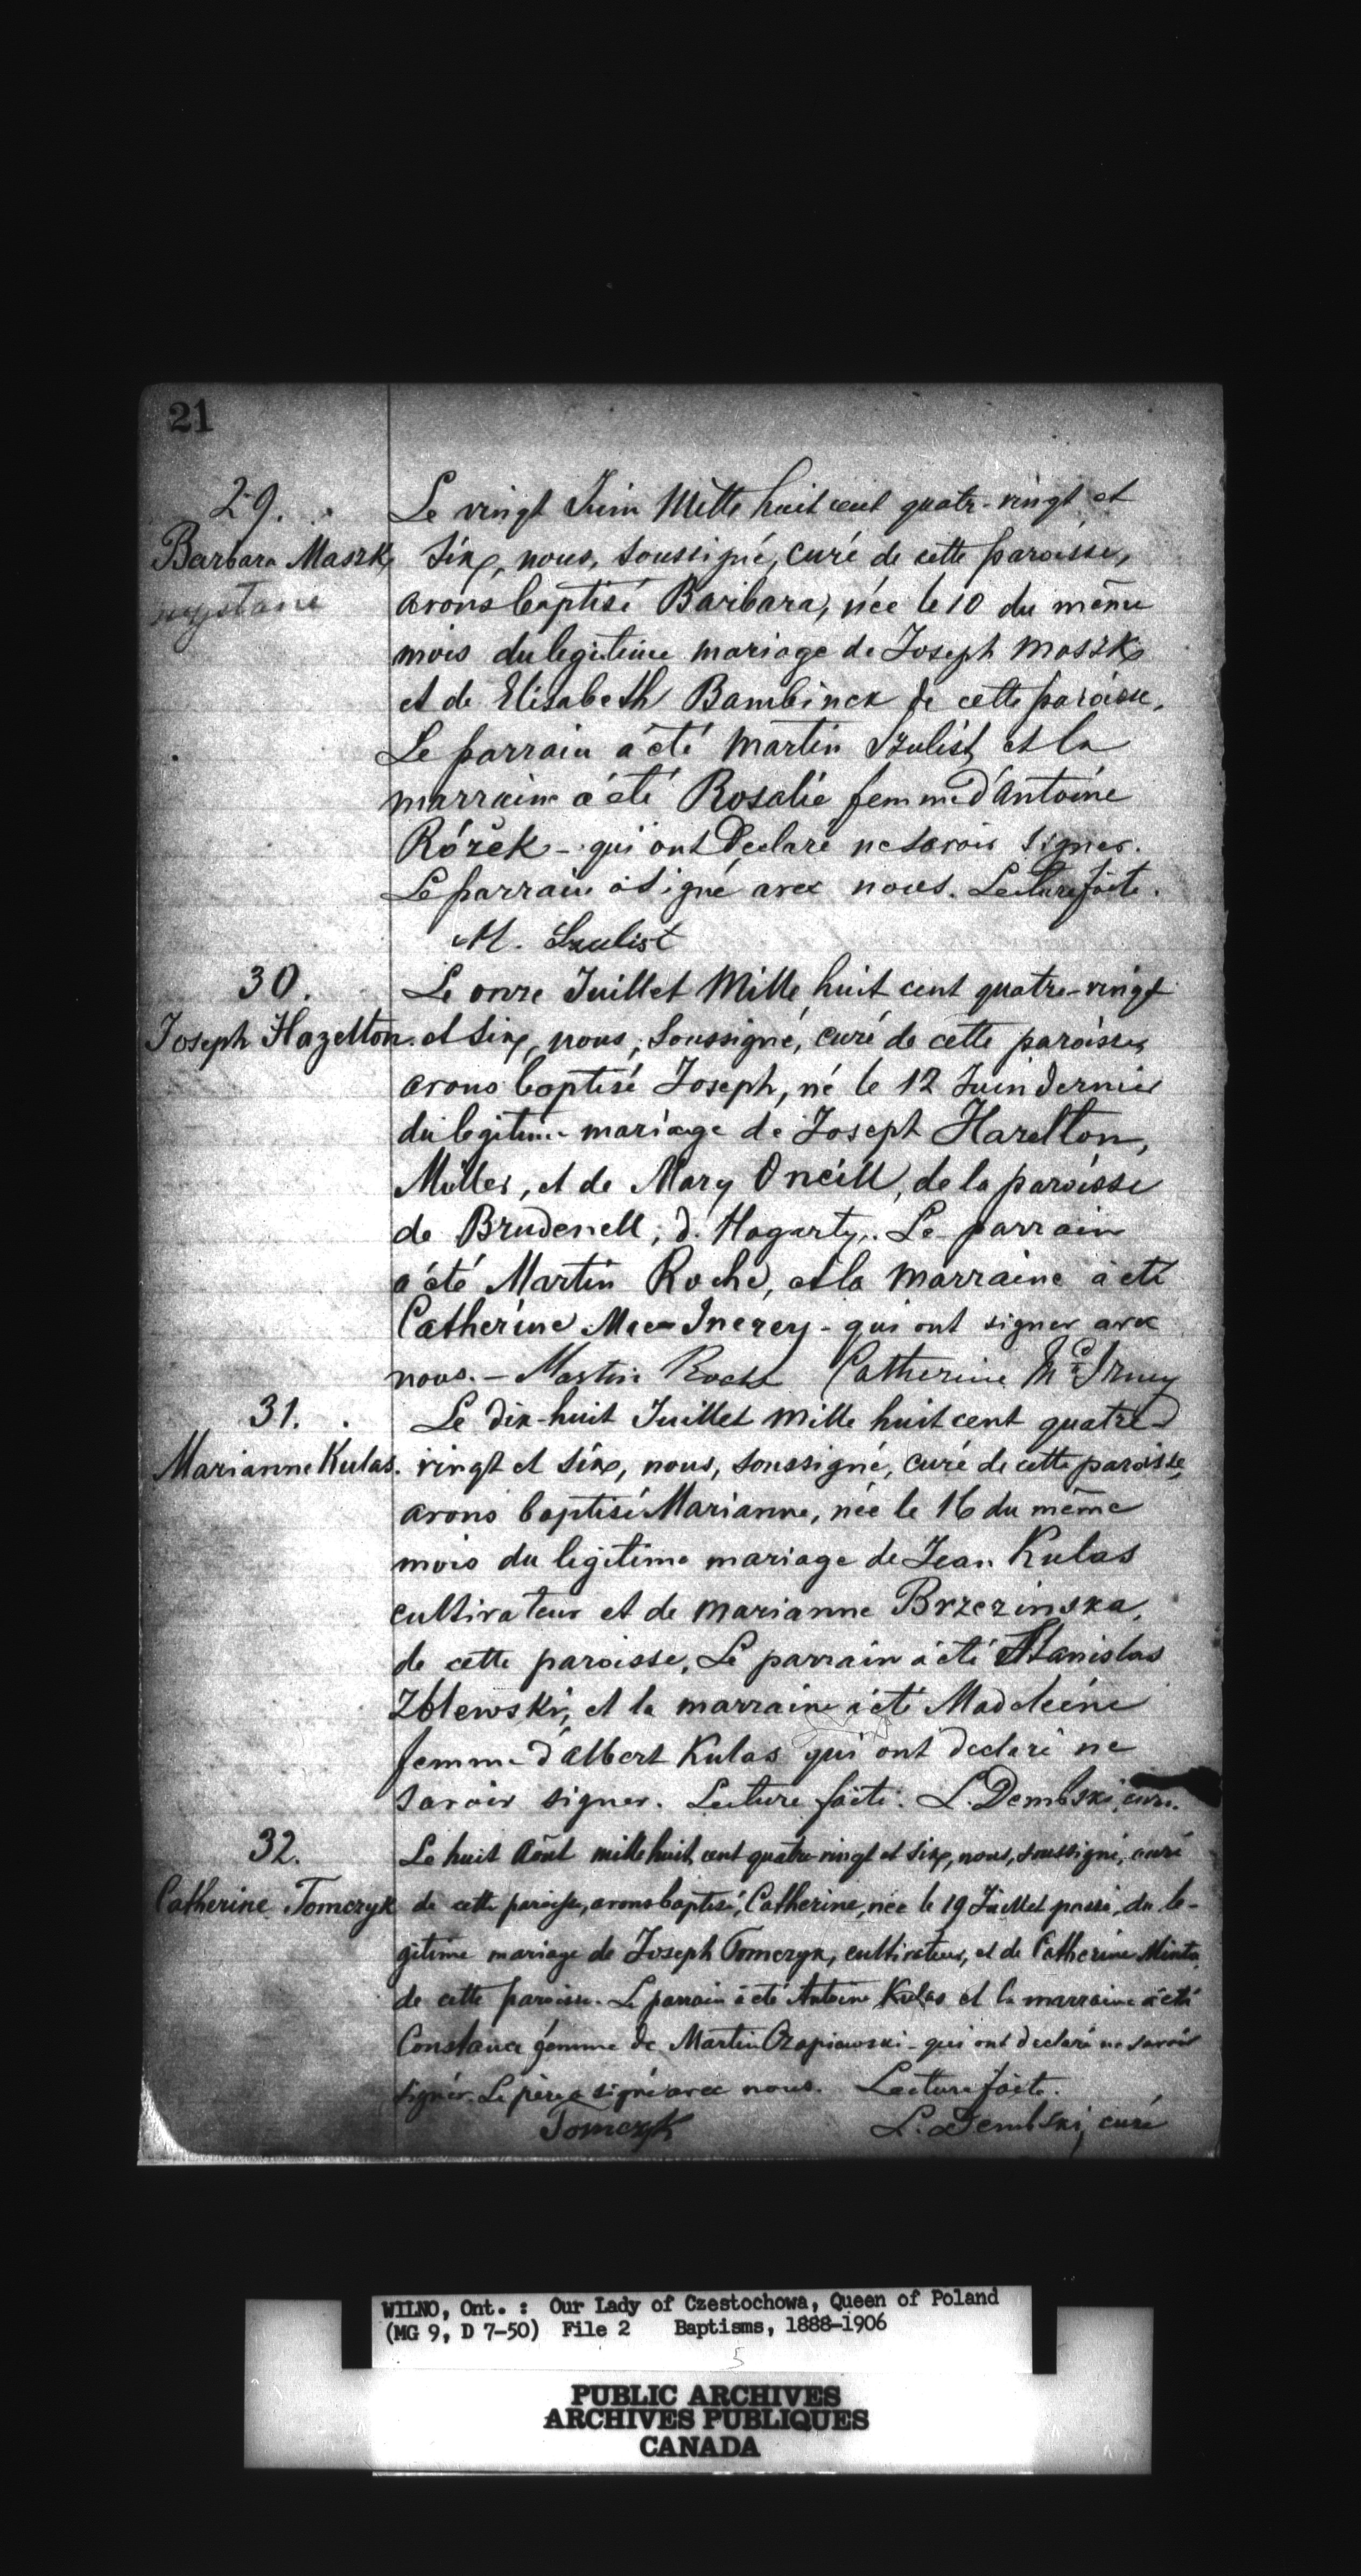 21
29.
Barbara Maszk
Le vingt Juin Mille huit cent quatr-vingt et
six, nous, soussigné, curé de cette paroisse,
avons baptisé Barbara, née le 10 du même
mois du legitime mariage de Joseph Maszk
et de Elisabeth Bambinek de cette paroisse.
Le parrain a été Martin Szulist et la
marraine a été Rosalie femme d'Antoine
Rózek - qui ont declaré ne savoir signer.
Le parrain a signé avec nous. Lecture faite.
M. Szulist
30.
Joseph Hazelton.
Le onze Juillet Mille huit cent quatre-vingt
et six, nous, soussigné, curé de cette paroisse,
avons baptisé Joseph, né le 12 Juin dernier
du legitime mariage de Joseph Hazelton,
Miller, et de Mary Oneill, de la paroisse
de Brudenell, d. Hagarty. Le parrain
a été Martin Roche, et la marraine a eté
Catherine Mac Inerey - qui ont signer avec
nous. - Martin Roche Catherine McInrey
31.
Marianne Kulas.
Le dix-huit Juillet mille huit cent quatre-
vingt et six, nous, soussigné, curé de cette paroisse,
avons baptisé Marianne, née le 16 du même
mois du legitime mariage de Jean Kulas
cultivateur et de Marianne Brzezinska,
de cette paroisse. Le parrain a été Stanislas
Zblewski, et la marraine a été Madeleine
femme d'Albert Kulas qui ont declaré ne
savoir signer. Lecture faite. L. Dembski, curé.
32.
Catherine Tomczyk
Le huit Août mille huit cent quatre-vingt et six, nous, soussigné, curé
de cette paroisse, avons baptisé, Catherine, née le 19 Juillet passé, du le-
gitime mariage de Joseph Tomczyk, cultivateur, et de Catherine Minta
de cette paroisse. Le parrain a été Antoine Kulas et la marraine a été
Constance femme de Martin Czapiewski - qui ont declaré ne savoir
signer. Le père a signé avec nous. Lecture faite.
Tomczyk L. Dembski, curé
WILNO, Ont. : Our Lady of Czestochowa, Queen of Poland
(MG 9, D 7-50) File 2 Baptisms, 1888-1906
5
PUBLIC ARCHIVES
ARCHIVES PUBLIQUES
CANADA